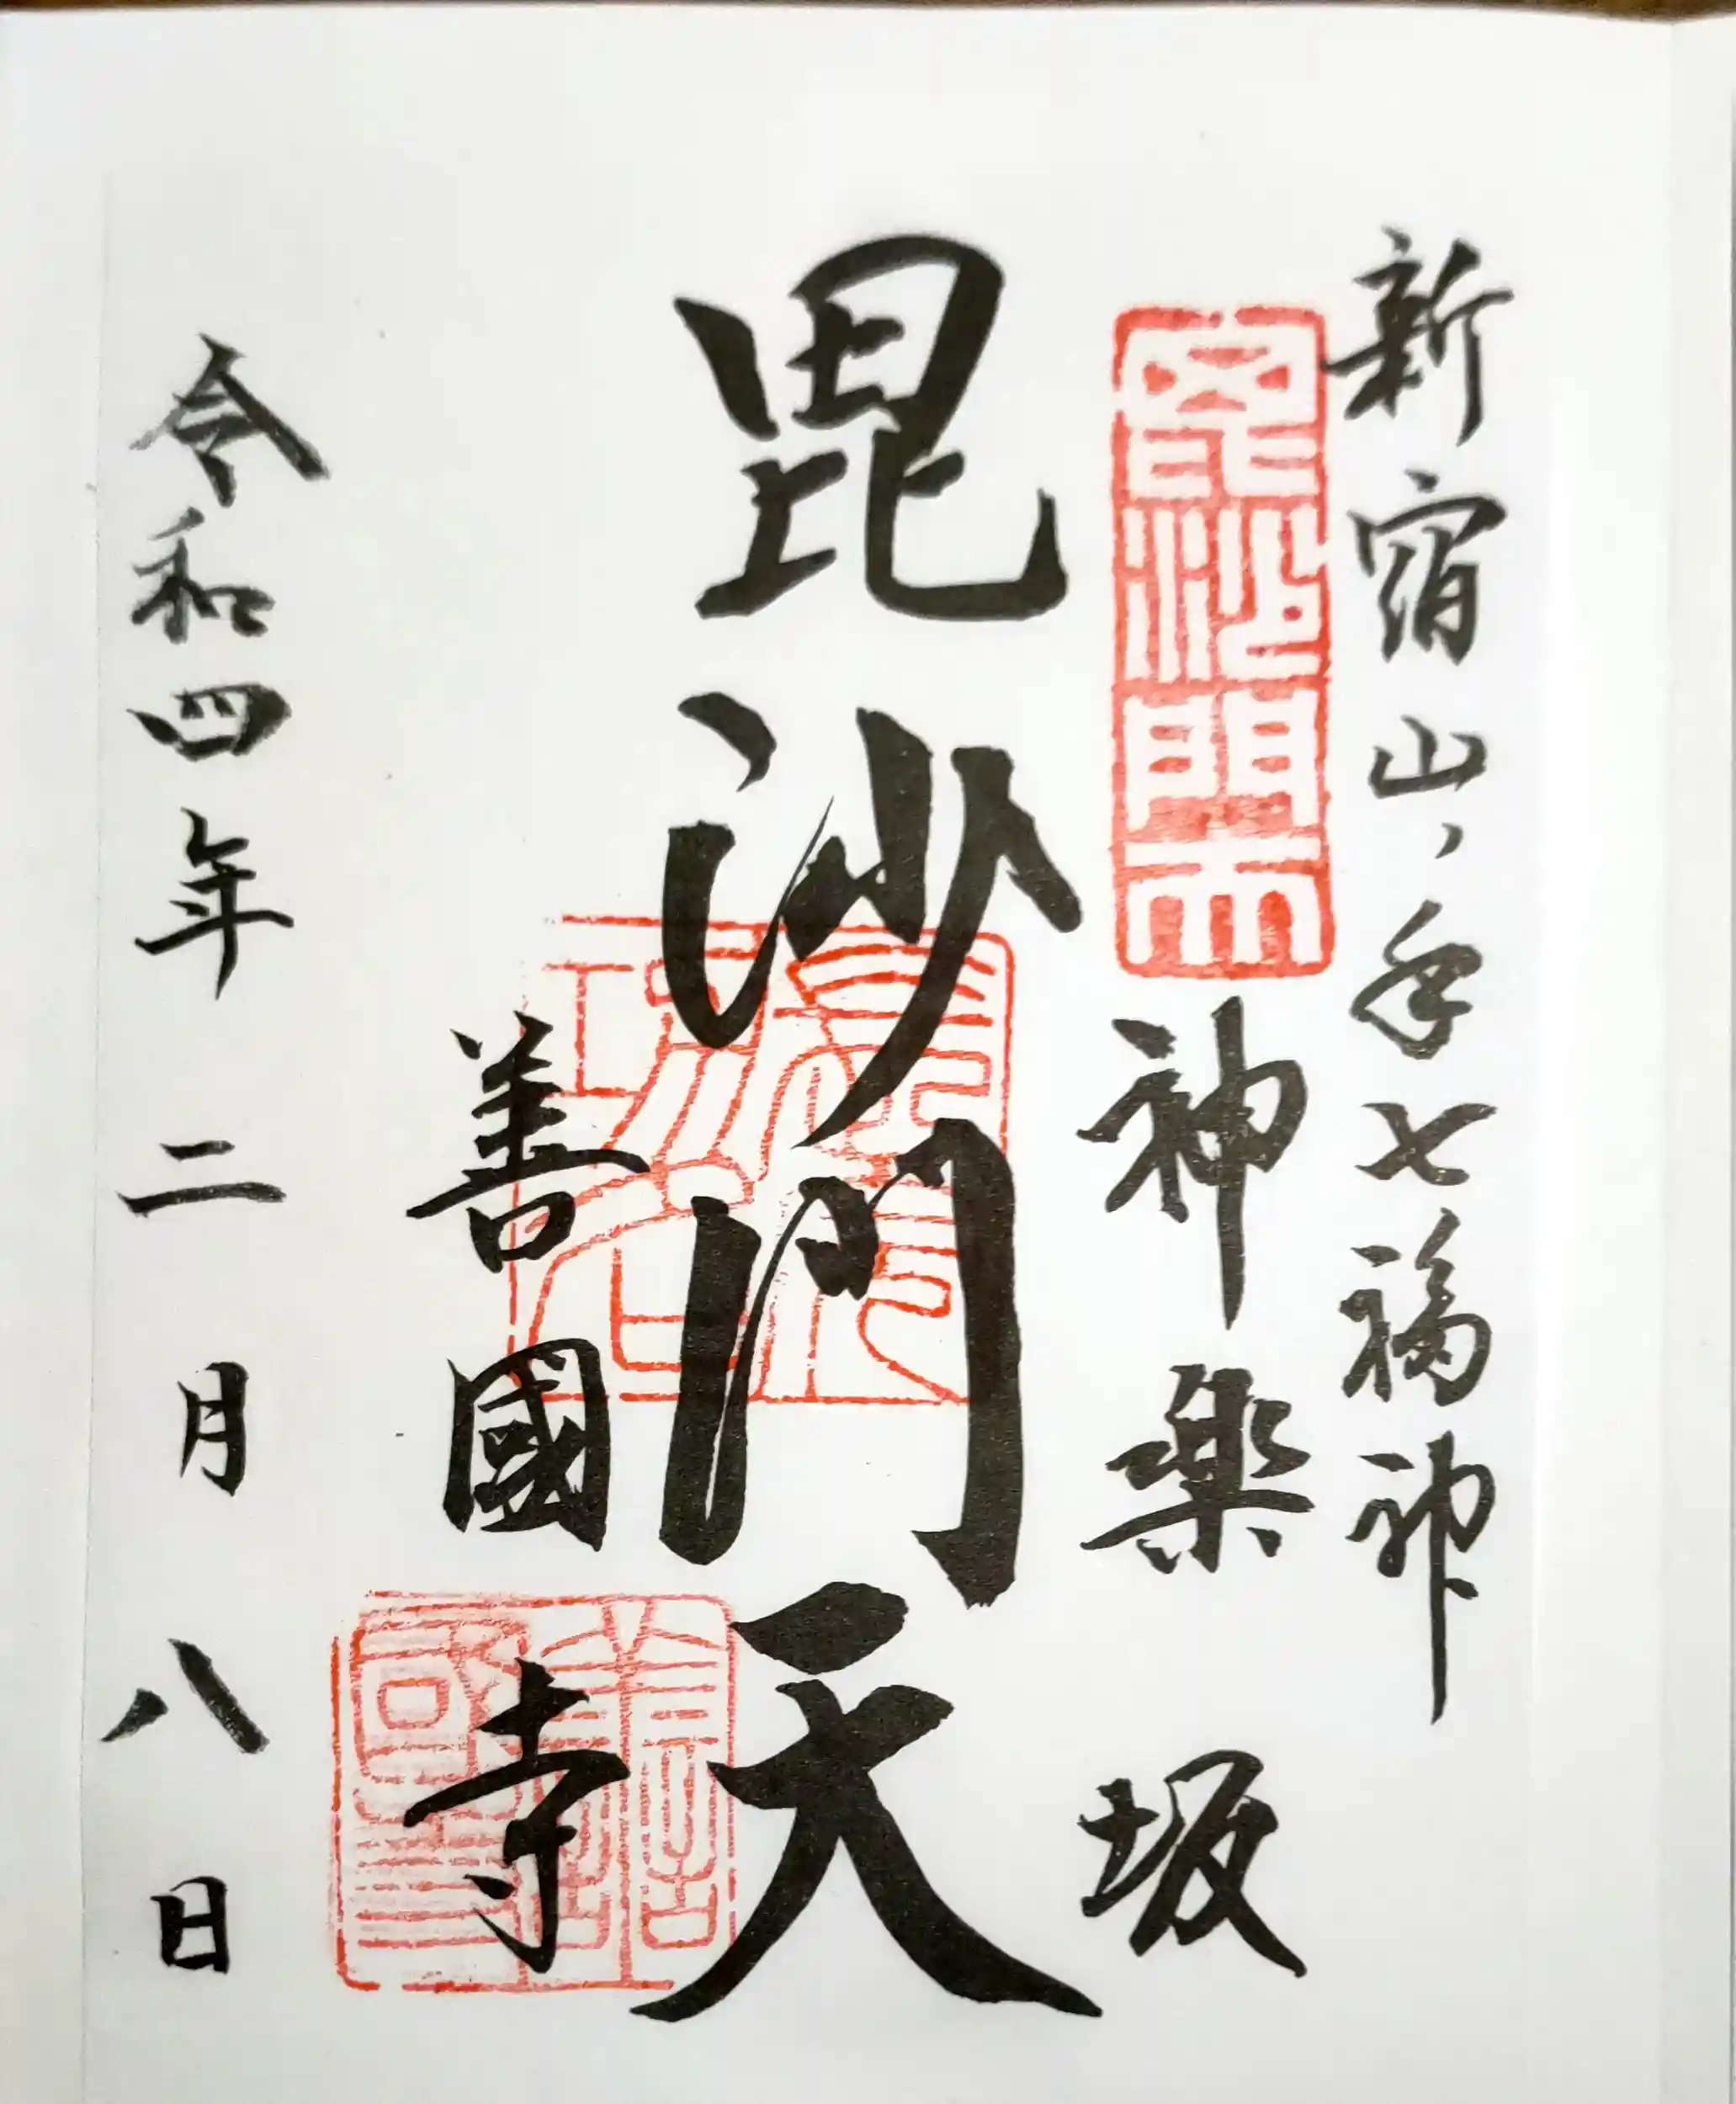 新宿山ノ手七福神
毘沙門天
神楽坂
毘沙門天
善國寺
令和四年二月八日